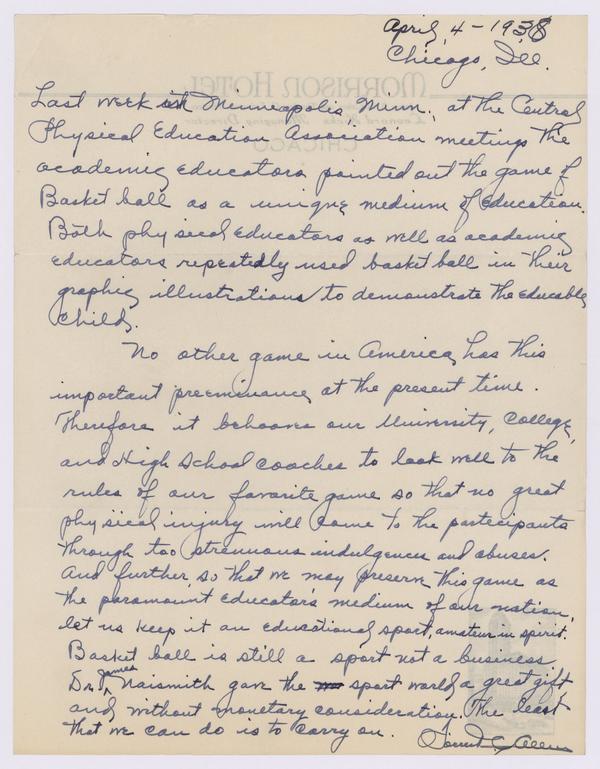 April, 4-1938
Chicago, Ill.
MORRISON HOTEL
Leonard Hicks Managing Director
CHICAGO
Last week in Minneapolis, Minn., at the Central
Physical Education Association meetings the
academic educators pointed out the game of
Basket ball as a unique medium of education.
Both physical educators as well as academic
educators repeatedly used basket ball in their
graphic illustrations to demonstrate the educable
child.
No other game in America has this
important preeminance at the present time.
Therefore it behooves our University, College,
and High School coaches to look well to the
rules of our favorite game so that no great
physical injury will come to the participants
through too strenuous indulgences and abuses.
And further, so that we may preserve this game as
the paramount educator's medium of our nation,
let us keep it an educational sport, amateur in spirit.
Basket ball is still a sport not a business.
Dr. James Naismith gave the sport world a great gift
and without monetary consideration. The least
that we can do is to carry on.
Forrest C. Allen